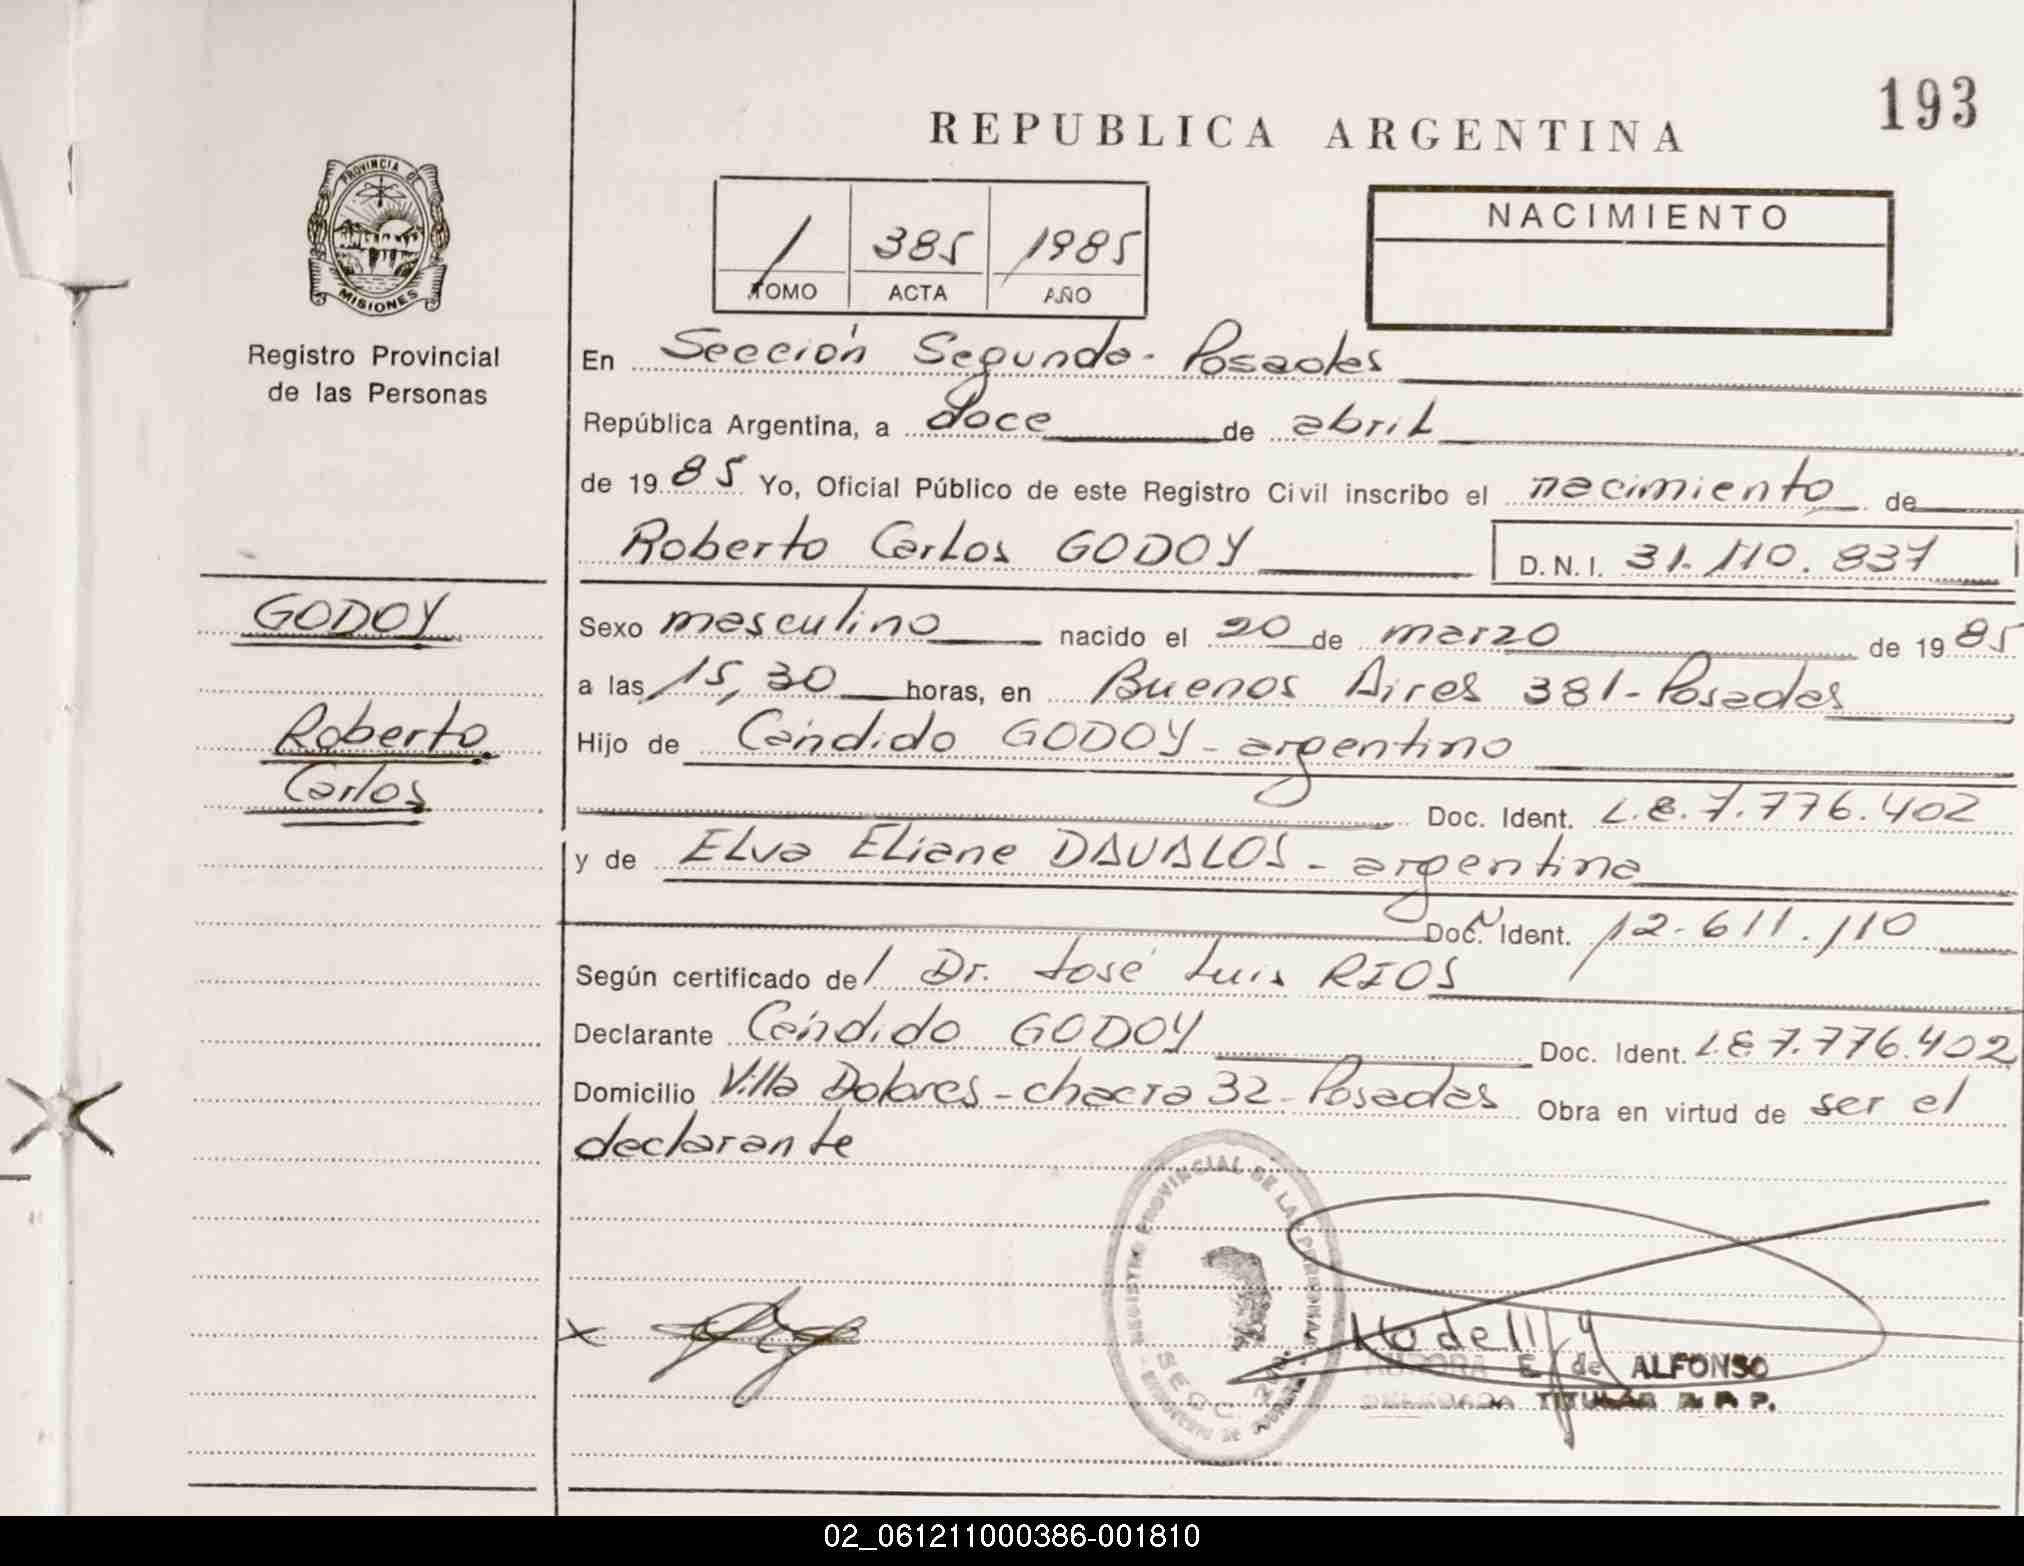 193
REPUBLICA ARGENTINA
PROVINCIA DE
MISIONES
Registro Provincial
de las Personas
1 385 1985
TOMO ACTA AÑO
NACIMIENTO
En Sección Segunda - Posadas
República Argentina, a doce de abril
de 1985 Yo, Oficial Público de este Registro Civil inscribo el nacimiento de
Roberto Carlos GODOY D.N.I. 31.110.837
GODOY
Roberto
Carlos
Sexo masculino nacido el 20 de marzo de 1985
a las 15,30 horas, en Buenos Aires 381 - Posadas
Hijo de Cándido GODOY - argentino
Doc. Ident. L.E. 7.776.402
y de Elva Eliane DAVALOS - argentina
Doc. Ident. 12.611.110
Según certificado de/ Dr. José Luis RIOS
Declarante Cándido GODOY Doc. Ident. L.E 7.776.402
Domicilio Villa Dolores - chacra 32 - Posadas Obra en virtud de ser el
declarante
REGISTRO PROVINCIAL DE LAS PERSONAS
SECC.
E. de ALFONSO
TITULAR R. P. P.
02_061211000386-001810